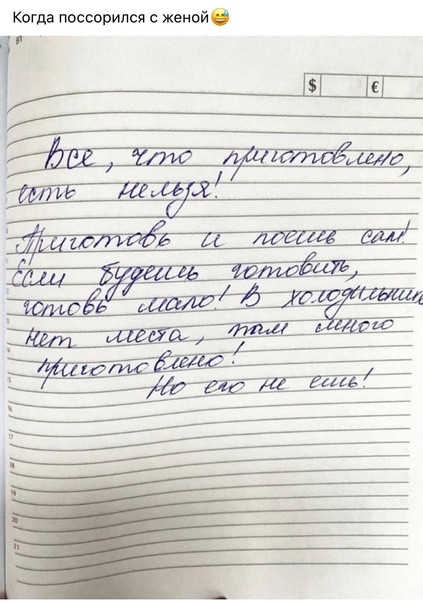 Когда поссорился с женой😅
$ €
Все, что приготовлено,
есть нельзя!
Приготовь и поешь сам!
Если будешь готовить,
готовь мало! В холодильнике
нет места, там много
приготовлено!
Но его не ешь!
16
17
18
19
20
21